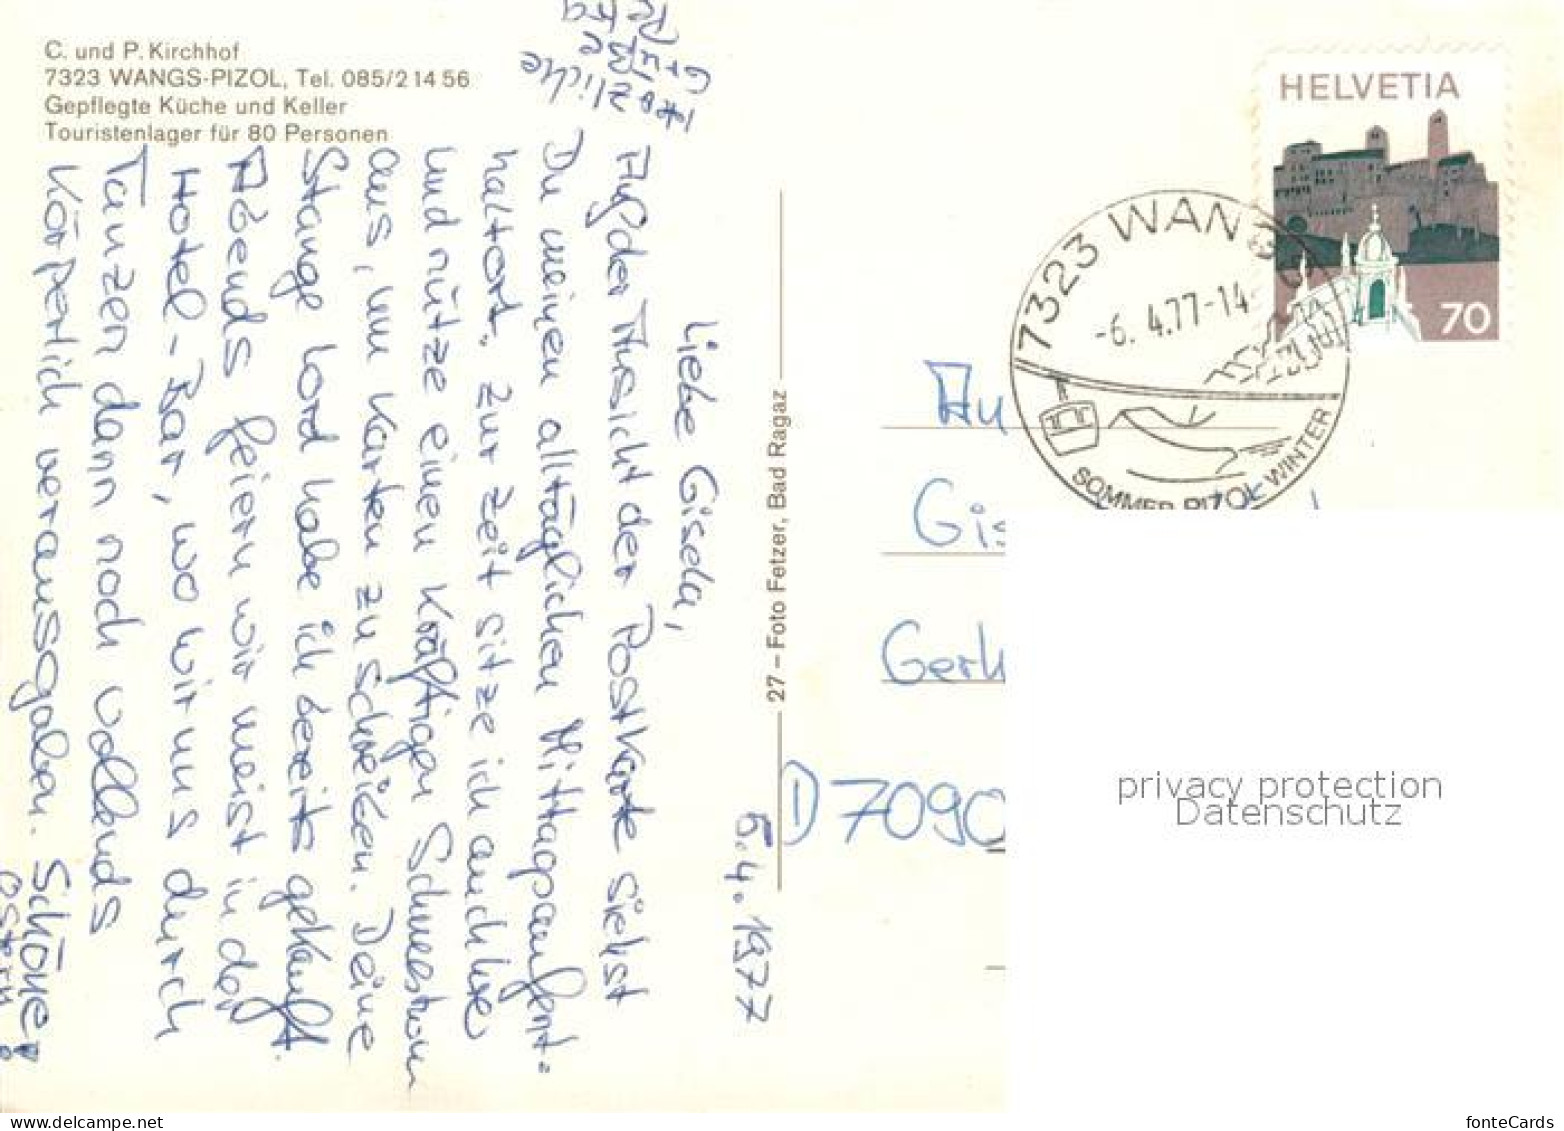 C. und P. Kirchhof
7323 WANGS-PIZOL, Tel. 085/2 14 56
Gepflegte Küche und Keller
Touristenlager für 80 Personen
5.4.1977
Liebe Gisela,
Auf der Ansicht der Postkarte siehst
Du meinen alltäglichen Mittagaufent-
haltort. Zur Zeit sitze ich auch hier
und nütze einen kräftigen Schneesturm
aus, um Karten zu schreiben. Deine
Stange Lord habe ich bereits gekauft.
Abends feiern wir meist in der
Hotel-Bar, wo wir uns durch
Tanzen dann noch vollends
körperlich verausgaben. Schöne
Ostern!
Herzliche
Grüße
Petra
27 – Foto Fetzer, Bad Ragaz
HELVETIA
70
7323 WANGS
-6.4.77-14
PIZOL
SOMMER PIZOL WINTER
Gis
Gerh
D 7090
privacy protection
Datenschutz
www.delcampe.net
fonteCards